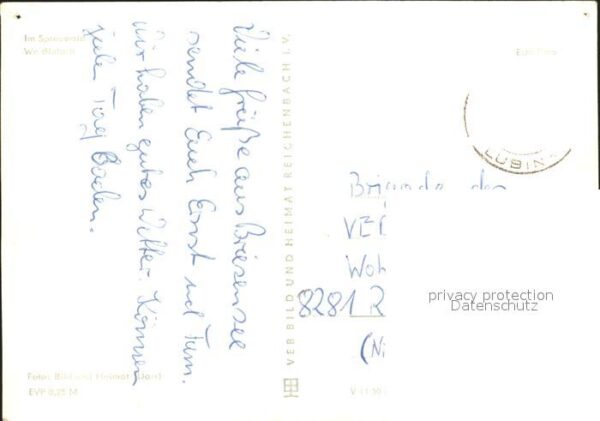 Im Spreewald
Viele Grüße aus Briesensee
sendet Euch Ernst und Fam.
Wir haben gutes Wetter. Können
jeden Tag Baden.
Foto: Bild und Heimat
EVP 0,25 M
VEB BILD UND HEIMAT REICHENBACH I. V.
V 11 50
LÜBIN
Brigade der
VEB
Woh
8281 R
(Ni
privacy protection
Datenschutz